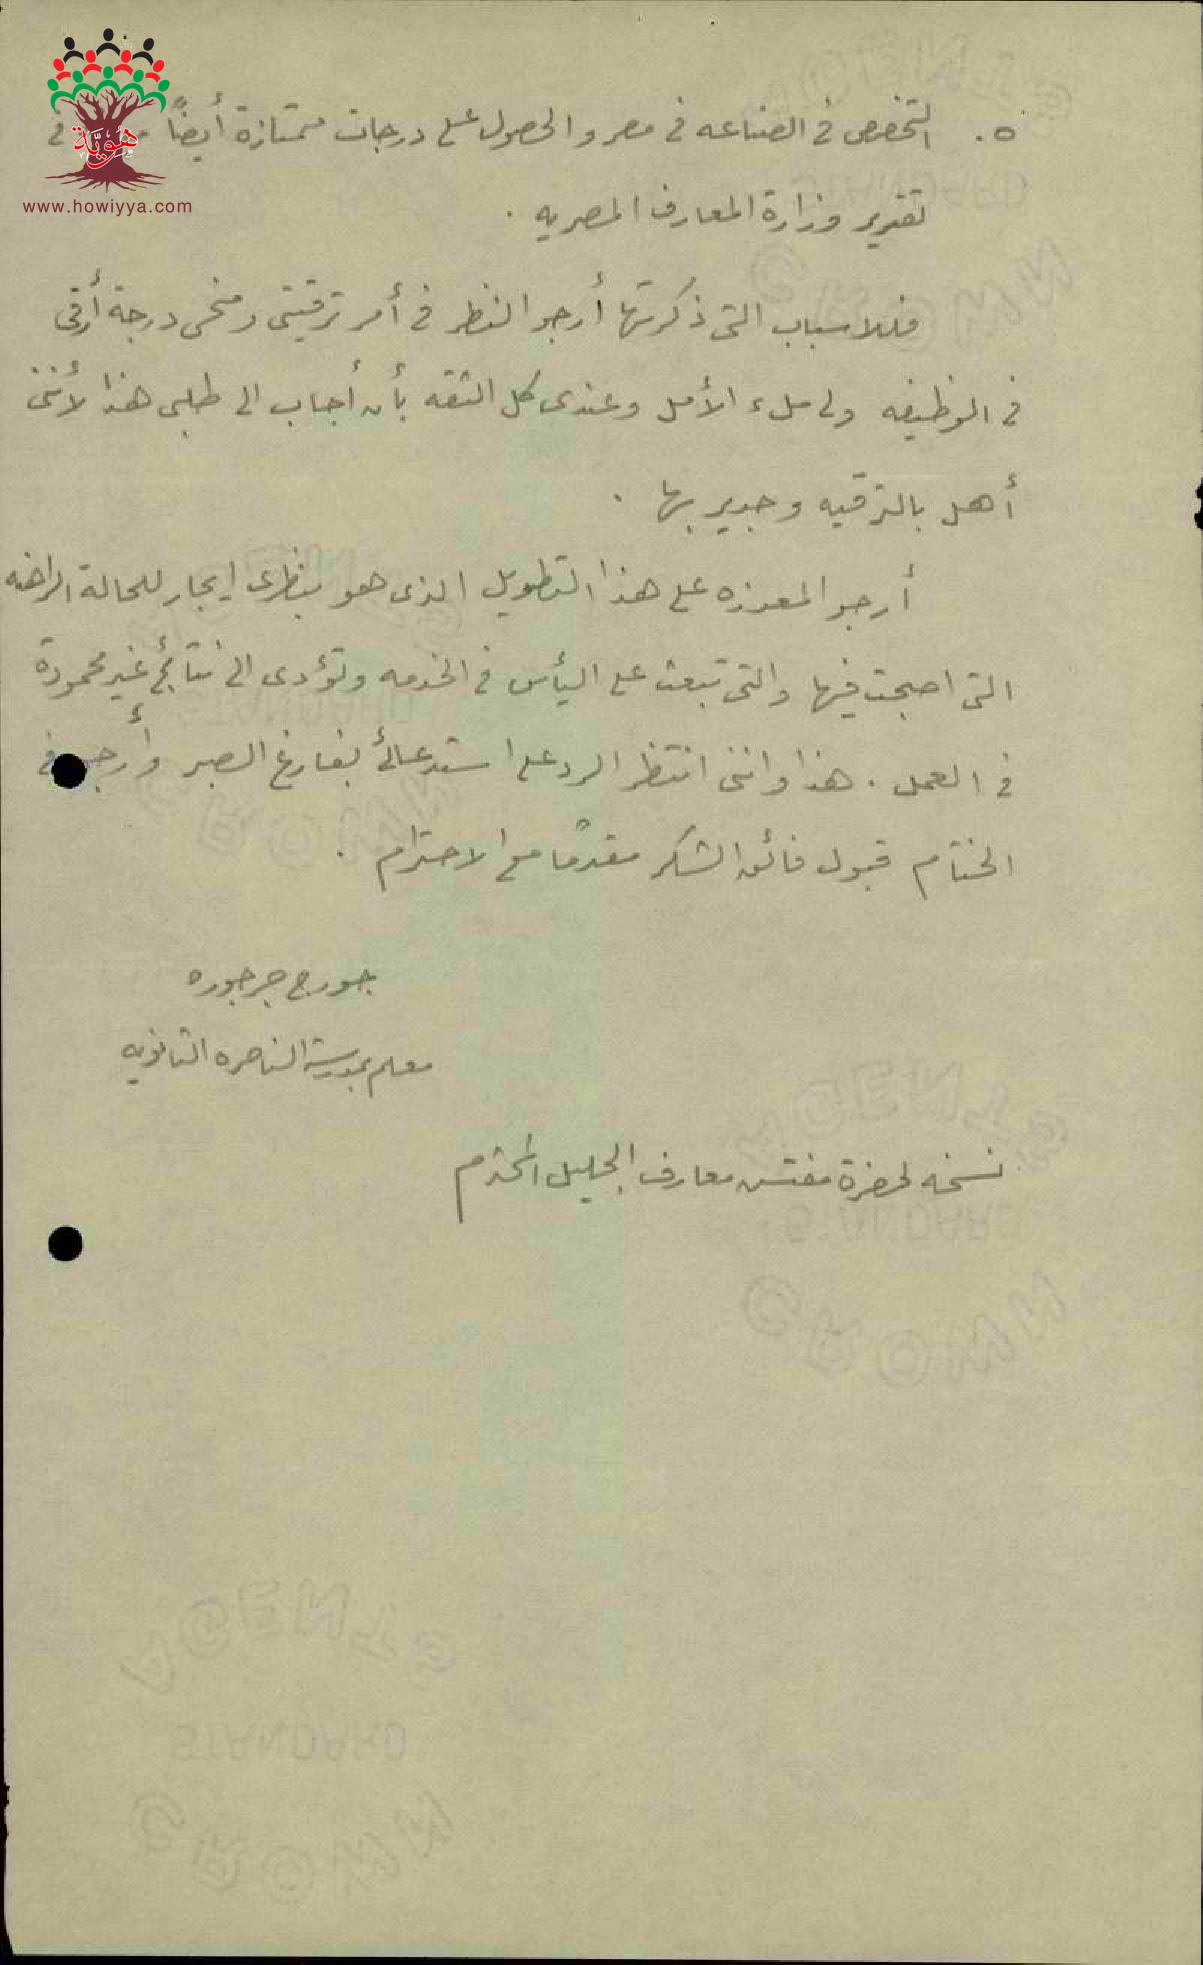 هوية
www.howiyya.com
٥. التخصص في الصناعه في مصر والحصول على درجات ممتازة أيضاً في
تقرير وزارة المعارف المصريه .
فللاسباب التي ذكرتها أرجو النظر في أمر ترقيتي ومنحي درجة أرقى
في الوظيفه ولي ملء الأمل وعندي كل الثقه بأن أجاب الى طلبي هذا لأنني
أهل بالترقيه وجدير بها .
أرجو المعذره على هذا التطويل الذي هو بنظري ايجاز للحالة الراهنه
التي اصبحت فيها والتي تبعث على اليأس في الخدمه وتؤدي الى نتائج غير محمودة
في العمل . هذا وانني انتظر الرد على استدعائي بفارغ الصبر وأرجو في
الختام قبول فائق الشكر مقدمًا مع الاحترام .
جورج جرجوره
معلم بمدرسة الناصره الثانويه
نسخه لحضرة مفتش معارف الجليل المحترم
AGENTS
STANDARD
CROWN